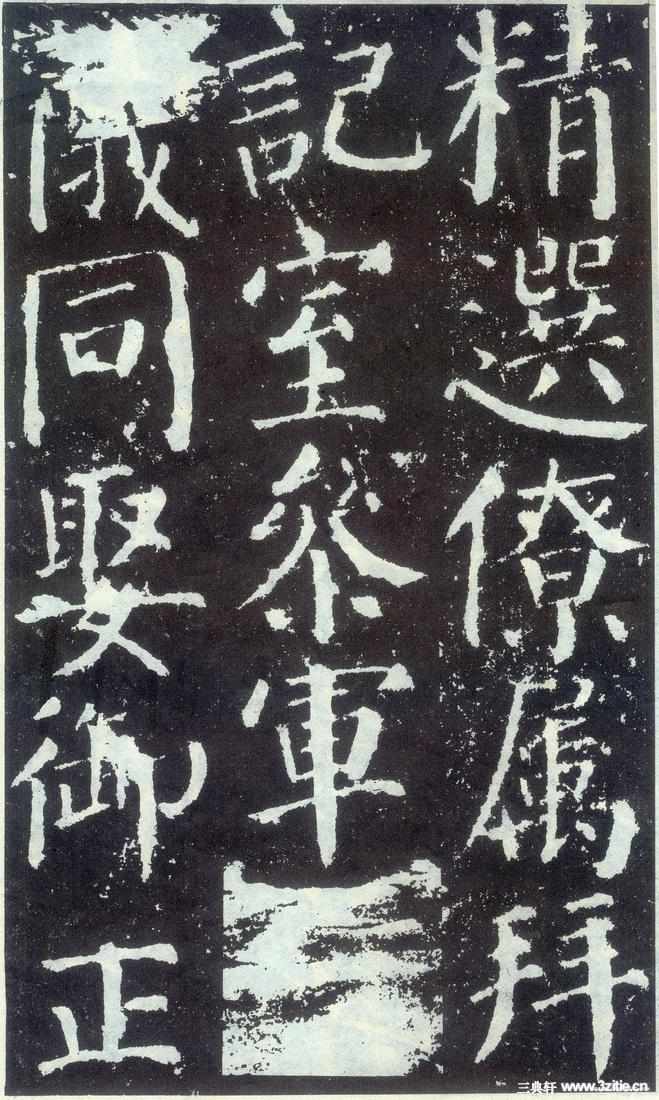 精選僚属拜
記室叅軍
儀同娶御正
三典轩 www.3zitie.cn